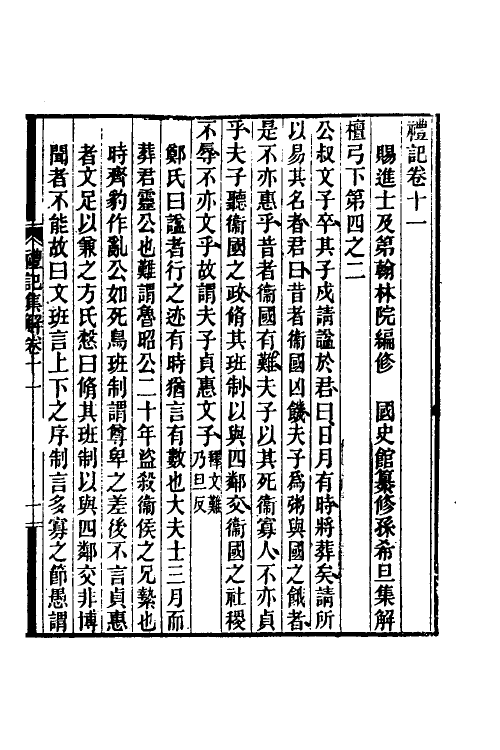 禮記卷十一
賜進士及第翰林院編修　國史館纂修孫希旦集解
檀弓下第四之二
公叔文子卒其子戍請諡於君曰日月有時將葬矣請所
以易其名者君曰昔者衞國凶饑夫子爲粥與國之餓者
是不亦惠乎昔者衞國有難夫子以其死衞寡人不亦貞
乎夫子聽衞國之政脩其班制以與四鄰交衞國之社稷
不辱不亦文乎故謂夫子貞惠文子釋文難乃旦反
鄭氏曰諡者行之迹有時猶言有數也大夫士三月而
葬君靈公也難謂魯昭公二十年盜殺衞侯之兄縶也
時齊豹作亂公如死鳥班制謂尊卑之差後不言貞惠
者文足以兼之方氏慤曰脩其班制以與四鄰交非博
聞者不能故曰文班言上下之序制言多寡之節愚謂
禮記集解卷十一
一